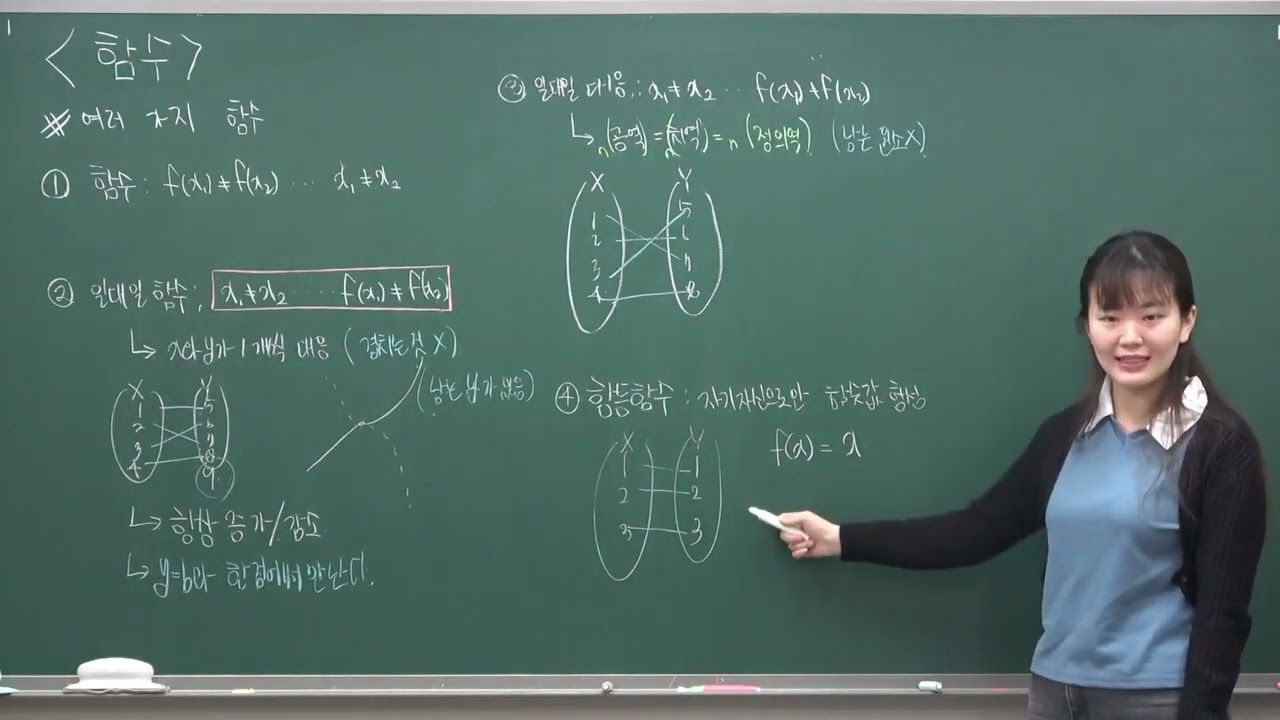 <함수>
※ 여러 가지 함수
① 함수: f(x₁)≠f(x₂) ··· x₁≠x₂
② 일대일 함수: x₁≠x₂ ····· f(x₁)≠f(x₂)
↳ x와 y가 1개씩 대응 (겹치는 것 X)
(남는 y가 있음)
X Y
1 5
2 6
3 7
4 8
9
↳ 항상 증가/감소
↳ y=b와 한 점에서 만난다.
③ 일대일 대응: x₁≠x₂ ·· f(x₁)≠f(x₂)
↳ n(공역)=n(치역)=n(정의역) (남는 원소X)
X Y
1 5
2 6
3 7
4 8
④ 항등함수: 자기자신으로만 함숫값 형성
f(x)=x
X Y
1 1
2 2
3 3